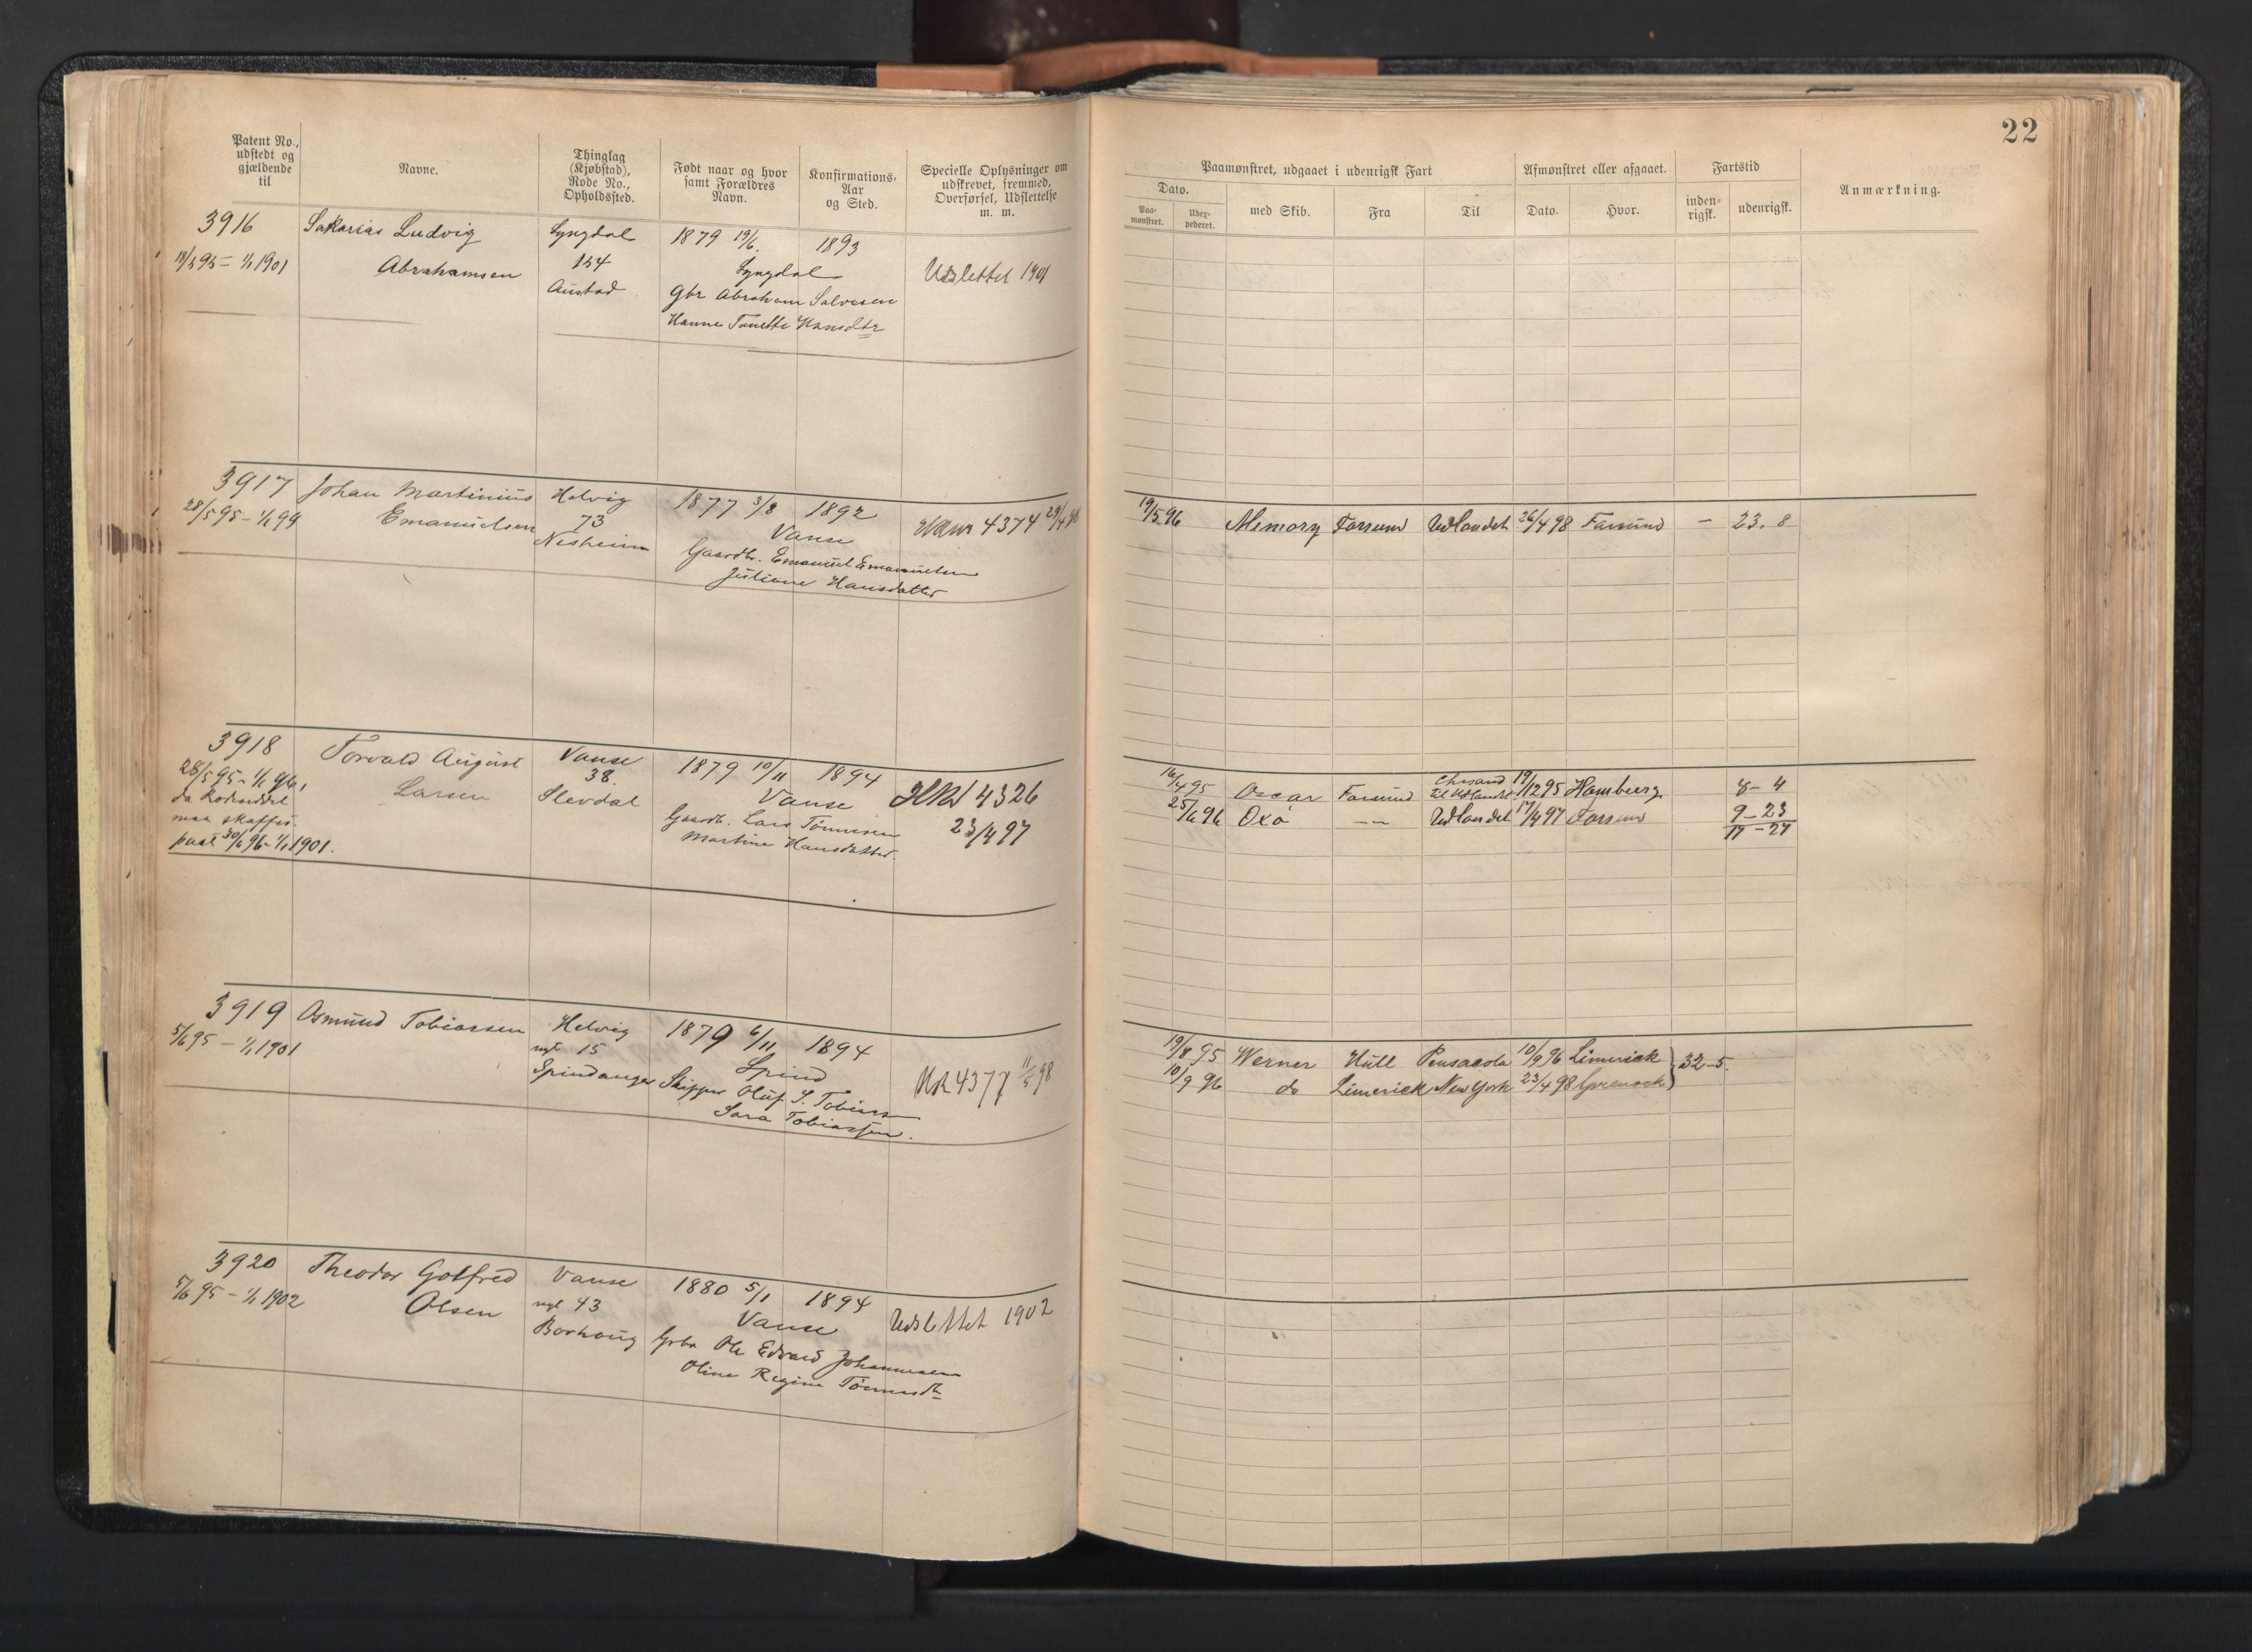 22
Patent No., udstedt og gjældende til
Navne.
Thinglag (Kjøbstad), Rode No., Opholdssted.
Født naar og hvor samt Forældres Navn.
Konfirmations-Aar og Sted.
Specielle Oplysninger om udskrevet, fremmed, Overførsel, Udslettelse m. m.
Paamønstret, udgaaet i udenrigsk Fart
Afmønstret eller afgaaet.
Fartstid
Anmærkning.
Dato.
med Skib.
Fra
Til
Dato.
Hvor.
inden-rigsk.
udenrigsk.
Paa-mønstret.
3916 Sakarias Ludvig Lyngdal 1879 19/6. 1893
18/5 95 – 1/1 1901 Abrahamsen 154 Lyngdal Udslettet 1901
Austad Gbr Abraham Salvesen
Hanne Tonette Hansdtr
3917 Johan Martinius Helvig 1877 3/8 1892
28/5 95 – 1/1 99 Emanuelsen 73 Vanse 4374 29/4 98
Nesheim Gaardb. Emanuel Emanuelsen
Juliane Hansdatter
19/5 96 Memory Farsund Udlandet 26/4 98 Farsund – 23. 8
3918 Torvald August Vanse 1879 10/11 1894
28/5 95 – 1/1 96, Larsen 38. Vanse 4326
da Rodeseddel Slevdal Gaardb. Lars Tønnesen 23/4 97
maa skaffes. Martine Hansdatter.
30/6 96 – 1/1 1901.
16/4 95 Oscar Farsund Chrsand til Udlandet 19/12 95 Hamburg 8 – 4
25/6 96 Oxö – – Udlandet 17/4 97 Farsund 9 – 23
17 – 27
3919 Osmund Tobiassen Helvig 1879 6/11 1894
5/6 95 – 1/1 1901 ngt 15 Spind
Spindanger Skipper Oluf S. Tobiass 4377 11/5 98
Sara Tobiassen.
19/8 95 Werner Hull Pensacola 10/9 96 Limerick } 32 – 5.
10/9 96 do Limerick New York 23/4 98 Greenock
3920 Theodor Gotfred Vanse 1880 5/1 1894
5/6 95 – 1/1 1902 Olsen ngt 43 Vanse Udslettet 1902
Borhoug Grbr Ole Edvard Johannesen
Oline Regine Tønnesdtr